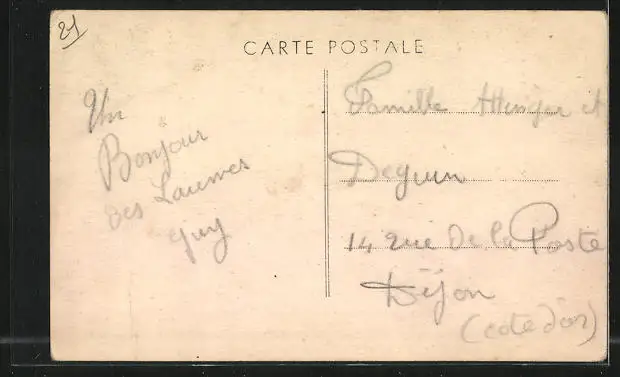 21
CARTE POSTALE
Un
Bonjour
des Laumes
Guy
Famille Attinger et
Deguin
14 rue De la Poste
Dijon
(cote d'or)